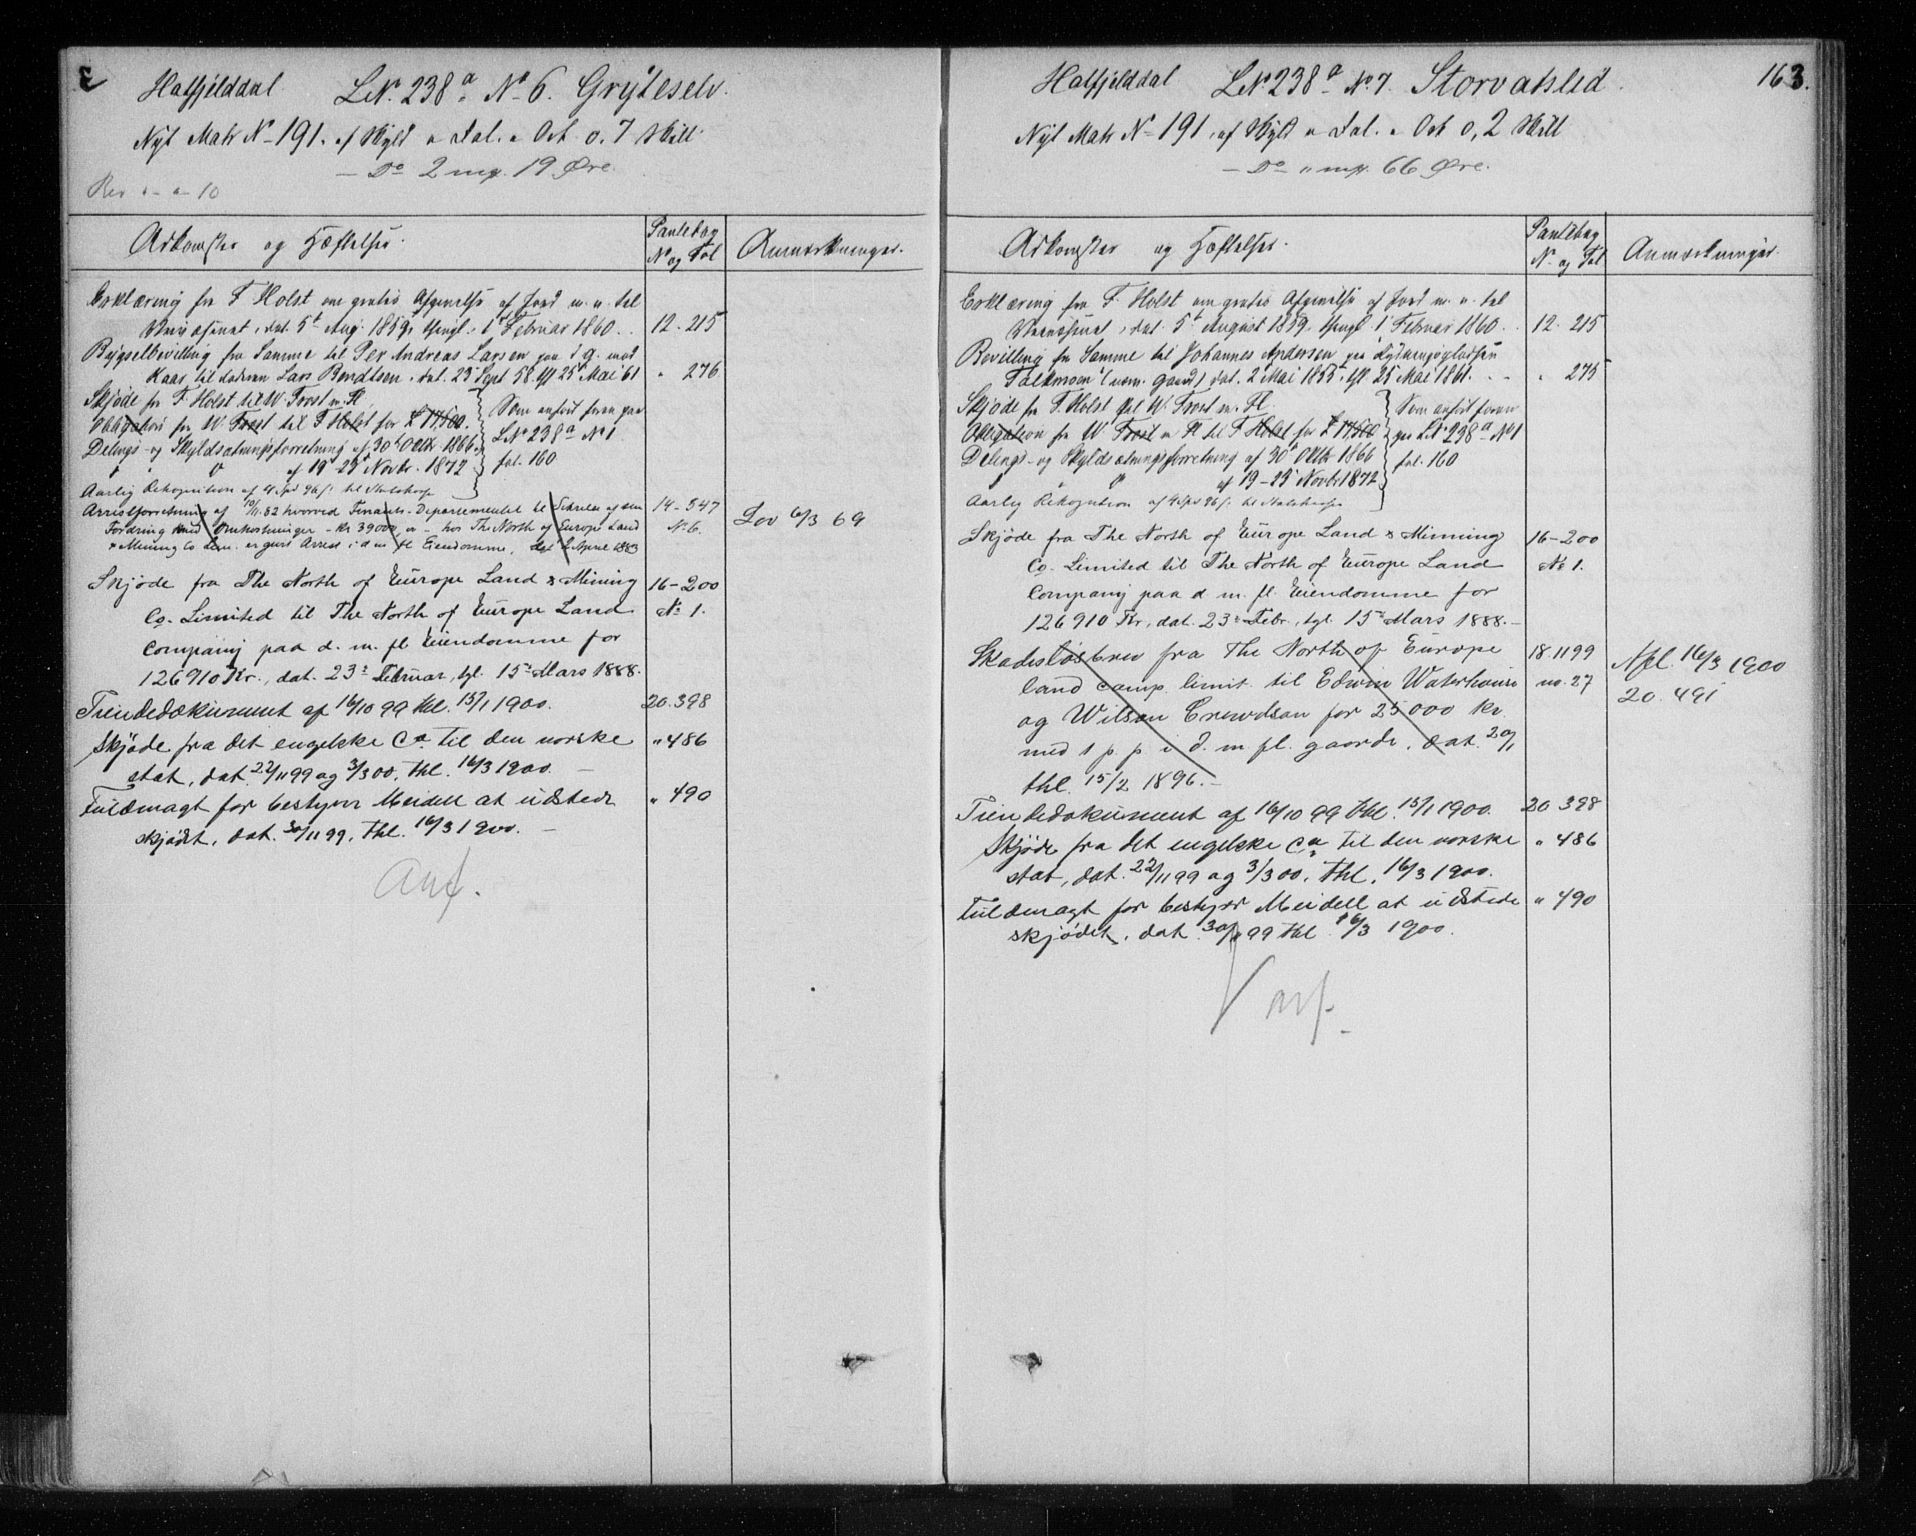 Hatfjelddal. LNo. 238a No 6. Gryteselv.
Nyt Matr No 191. af Skyld " Dal. " Ort 0. 7 Skill.
— Do 2 mrk. 19 Øre.
Rev " – " – 10
Adkomster og Hæftelser.
Pantebog
No og Fol
Anmærkninger.
Erklæring fra F. Holst om gratis Afgivelse af Jord m. v. til
dat. 5t Aug. 1859, thgl. 1 Februar 1860. . 12. 215
Bygselbevilling fra Samme til Per Andreas Larsen paa d. g. mod
Kaar til Lars Bendtsen, dat. 23 Sept 58. tgl 25 Mai 61 " 276
Skjøde fra F. Holst til W. Frost m. Fl.
Obligation fra W. Frost til F Holst for £ 17,500.
Delings- og Skyldsætningsforretning af 30t Oktbr 1866
" " " af 19–23 Novbr. 1872
Som anført foran paa
LNo 238a No 1
fol. 160
Aarlig Rekognition af 4 Spd 96 s. til Statskasse
Arrestforretning af 10/11 82 hvorved Finants-Departementet til Sikring af sin 14–547
Fordring med Omkostninger – kr. 39000 – hos The North of Europe Land No. 6.
& Mining Co Lim. er gjort Arrest i d. m. fl Eiendomme, tgl 2 April 1883
Lov 6/3 69
Skjøde fra The North of Europe Land & Mining 16–200
Co. Limited til The North of Europe Land No 1.
Company paa d. m. fl Eiendomme for
126910 Kr., dat. 23de Februar, tgl. 15de Mars 1888.
Tiendedokument af 16/10 99 thl. 15/1 1900. 20. 398
Skjøde fra det engelske Co. til den norske " 486
stat, dat. 22/11 99 og 3/3 00, thl. 16/3 1900. —
Fuldmagt for bestyrer Meidell at udstede " 490
skjødet, dat. 30/11 99, thl. 16/3 1900. —
Anf.
Hatfjelddal LNo 238a No. 7. Storvatslid. 163.
Nyt Matr No 191. af Skyld " Dal. " Ort 0, 2 Skill
— Do " mrk. 66 Øre.
Adkomster og Hæftelser.
Pantebog
No og Fol
Anmærkninger.
Erklæring fra F. Holst om gratis Afgivelse af Jord m. v. til
dat. 5t August 1859, thgl. 1 Februar 1860. . 12. 215
Bevilling fra Samme til Johannes Andersen paa
(nom. gaard) dat. 2 Mai 1855, tgl 25 Mai 1861. . . " 275
Skjøde fra F. Holst til W. Frost m. Fl.
Obligation fra W Frost m Fl til F Holst for £ 17,500
Delings- og Skyldsætningsforretning af 30t Oktbr 1866
" " af 19–23 Novbr 1872
Som anført foran
paa LNo 238a No 1
fol. 160
Aarlig Rekognition af 4 Spd 96 s. til Statskasse
Skjøde fra The North of Europe Land & Minning 16–200
Co. Limited til The North of Europe Land No 1.
Company paa d m. fl. Eiendomme for
126910 Kr, dat. 23de Febr., tgl. 15de Mars 1888. –
Skadesløsbrev fra The North of Europe 18. 1199
land comp. limit. til Edwin Waterhouse no. 27
og Wilson Crewdson for 25000 kr.
med 1 p. p. i d. m fl. gaarde, dat. 20/1
thl. 15/2 1896. –
Afl. 16/3 1900
20. 491
Tiendedokument af 16/10 99 thl. 15/1 1900. 20 398
Skjøde fra det engelske Co. til den norske " 486
stat, dat. 22/11 99 og 3/3 00, thl. 16/3 1900.
Fuldmagt for bestyrer Meidell at udstede " 490
skjødet, dat. 30/11 99 thl 16/3 1900.
Anf.